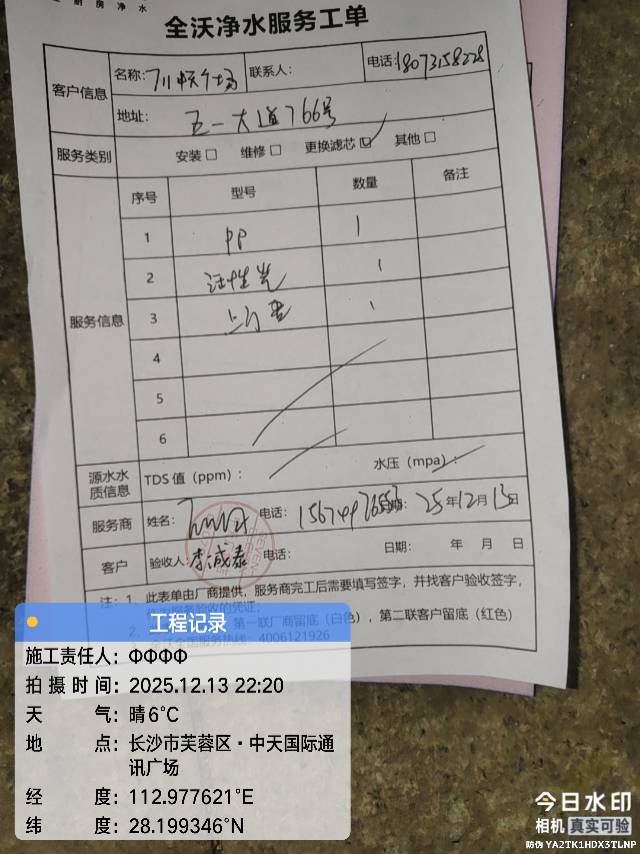 厨房净水
全沃净水服务工单
客户信息
名称:
联系人:
电话: 18073158228
地址: 五一大道766号
服务类别 安装□ 维修□ 更换滤芯☑ 其他□
服务信息
序号 型号 数量 备注
1 PP 1
2 活性炭 1
3 1
4
5
6
源水水质信息 TDS 值 (ppm): 水压 (mpa):
服务商 姓名: 电话: 日期: 25年12月13日
客户 验收人: 李诚泰 电话: 日期: 年 月 日
注: 1、此表单由厂商提供,服务商完工后需要填写签字,并找客户验收签字,
作为服务验收的凭证;
2、 第一联厂商留底(白色),第二联客户留底(红色)
全国服务热线: 4006121926
工程记录
施工责任人: ФФФФ
拍摄时间: 2025.12.13 22:20
天 气: 晴6℃
地 点: 长沙市芙蓉区·中天国际通
讯广场
经 度: 112.977621°E
纬 度: 28.199346°N
今日水印
相机 真实可验
防伪 YA2TK1HDX3TLNP